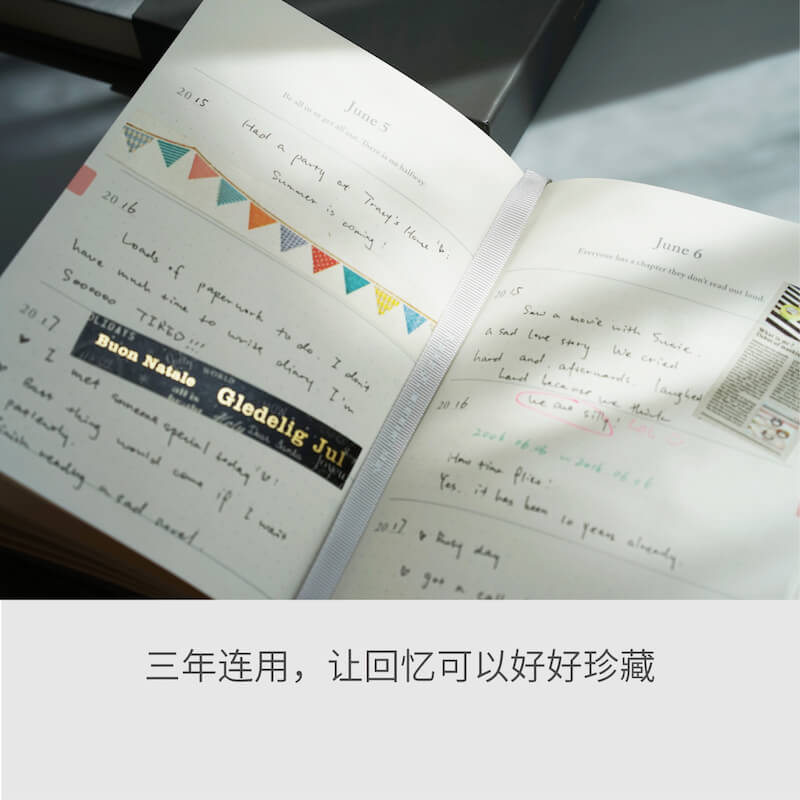 June 5
Be all in or get all out. There is no halfway.
2015
Had a party at Tracy's Home
Summer is coming!
2016
Loads of paperwork to do. I don't
have much time to write diary. I'm
Soooooo TIRED!!!
2017
OLIDAYS
WORLD
Buon Natale
Gledelig Jul
♥ I met someone special today
♥ Best thing would come if I wait
patiently.
reading a sad novel.
June 6
Everyone has a chapter they don't read out loud.
2015
Saw a movie with Susie.
a sad love story. We cried
hard and afterwards, laughed
hard because we think
we are silly!
2016
2006.06.06 ~ 2016.06.06
How time flies!
Yes, it has been 10 years already.
2017
♥ Busy day
♥ got a call
三年连用，让回忆可以好好珍藏